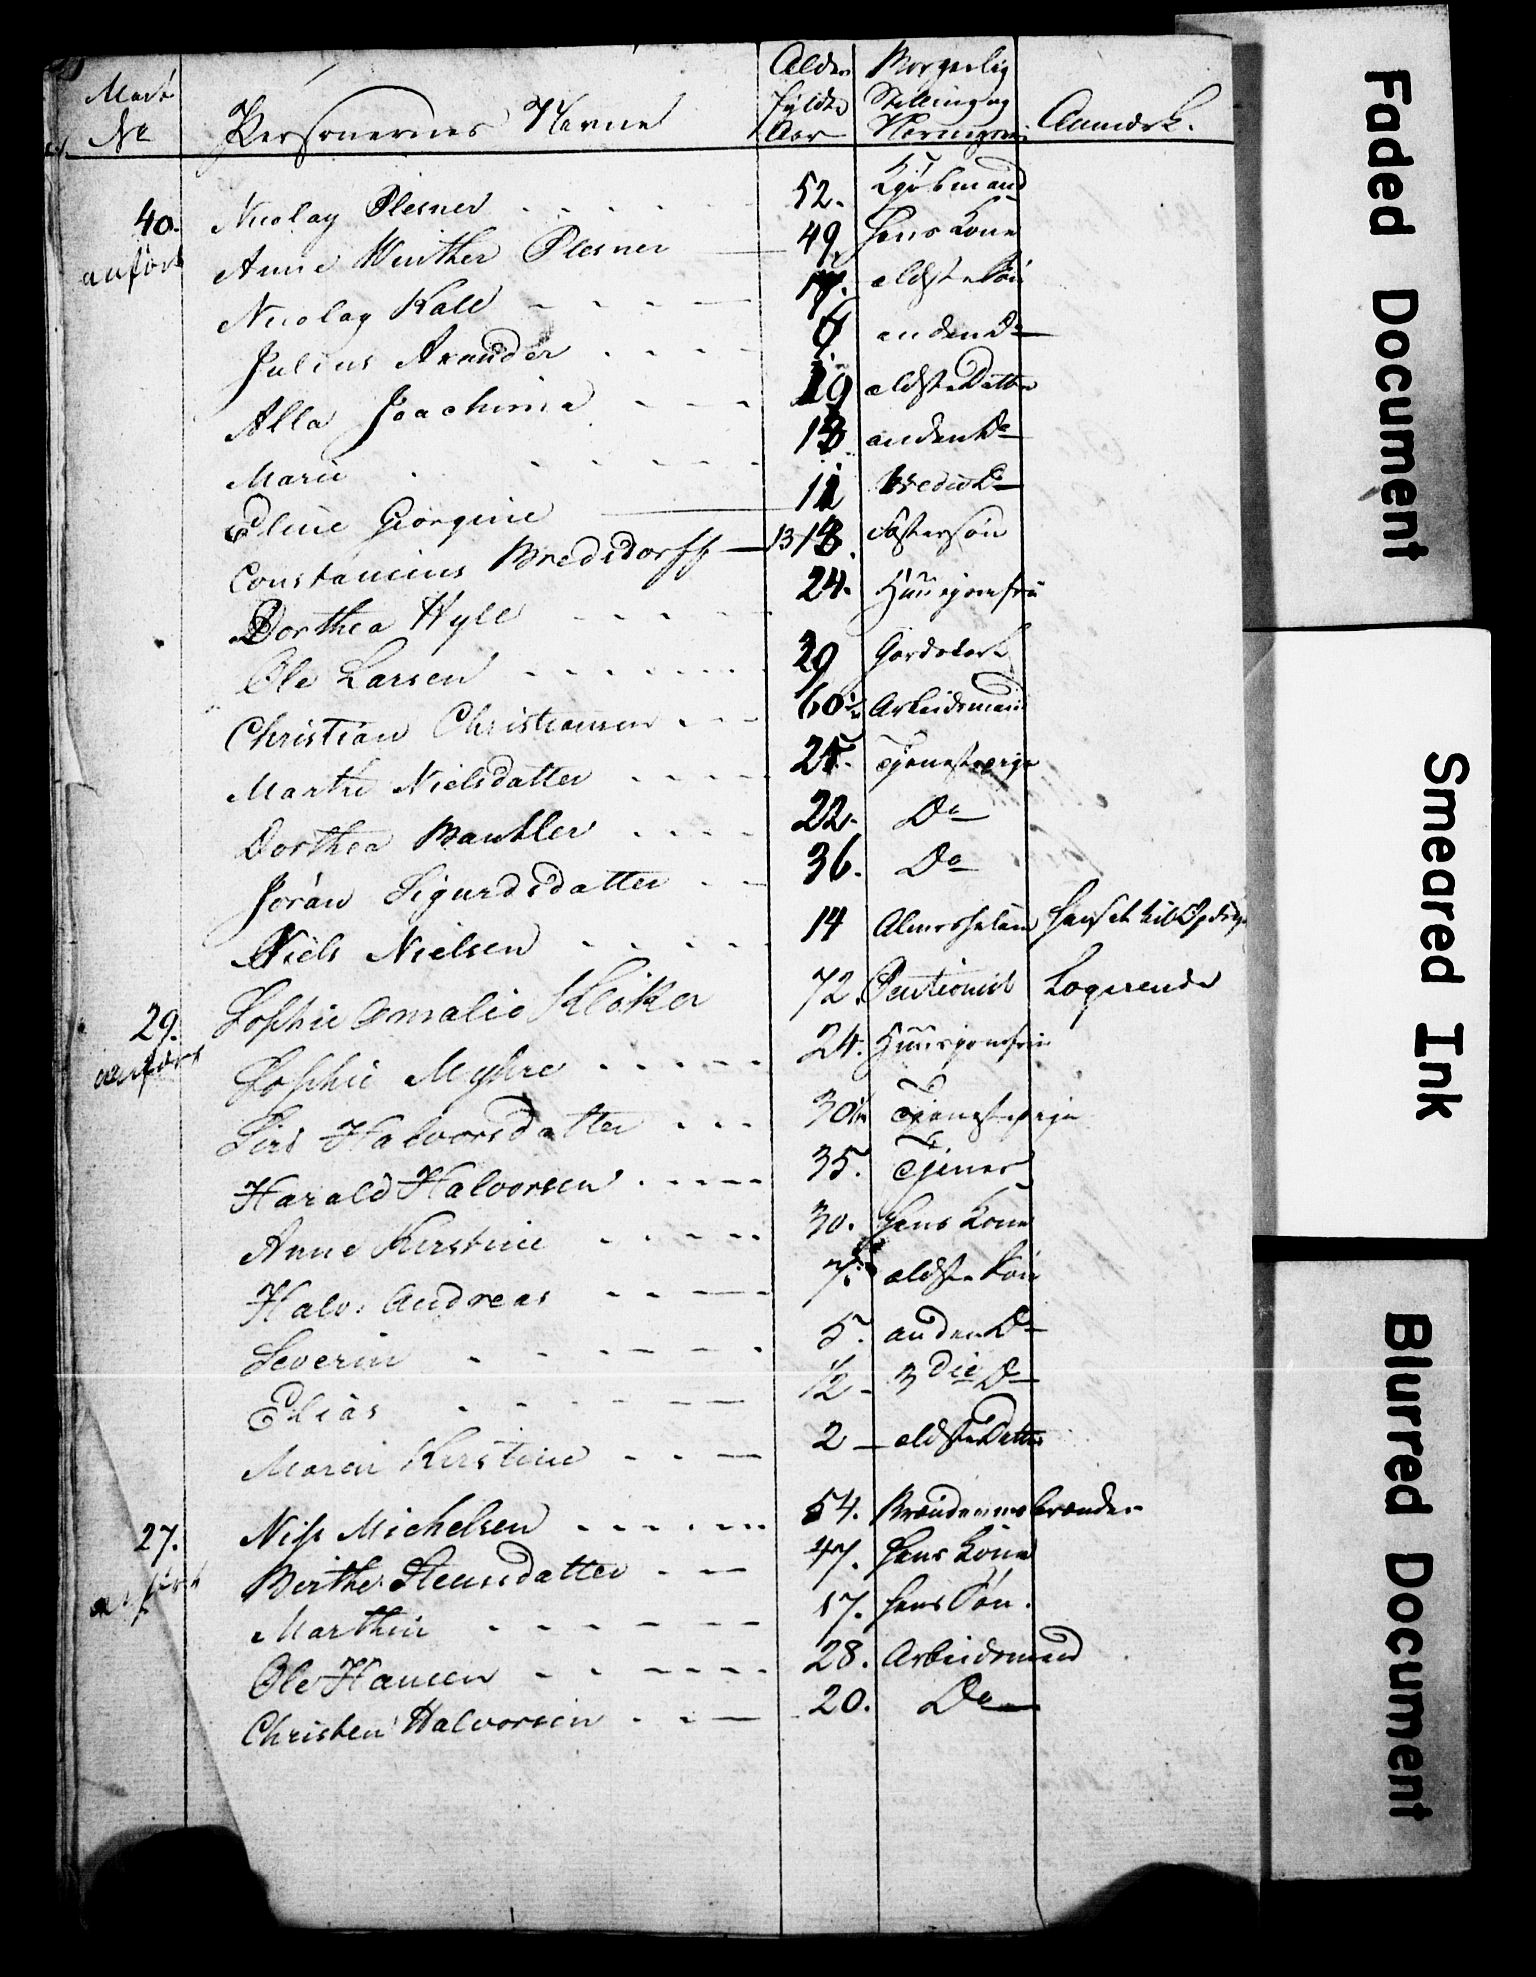 Matr No Personernes Navne Alder fyldte Aar Borgerlig Stilling og Næringsvei Anmærk.
40. Nicolay Plesner 52. Kjøbmand
anført Anne Winther Plesner 49. Hans Kone
Nicolay Kall ældste Søn
Julius Arander anden Do
Alla Joachima 19 ældste Datter
Marie 13 anden Do
Eline Georgine 11 tredie Do
Constantius Bredsdorff 13 Fostersøn
Dorthea Hyll 24. Huusjomfru
Ole Larsen 29 Gårdskarl
Christian Christiansen 60½ Arbeidsmand
Marthe Nielsdatter 25. Tjenestepige
Dorthea Bantler 22. Do
Jorån Sigurdsdatter 36. Do
Niels Nielsen 14 Almuehælen hensat til Opdrag
29. Sophie Amalie Kløker 72. Pentionist Logerende
anført Sophie Myhre 24. Huusjomfru
Siri Halvorsdatter 30½ Tjenestepige
Harald Halvorsen 35. Tjener
Anne Kirstine 30. Hans Kone
Halv. Andreas 7. ældste Søn
Severin 5. anden Do
Eliås ½ 3die Do
Maren Kirstine 2 ældste Datter
27. Niss Michelsen 54. Brændeviinsbrænder
anført Birthe Steensdatter 47. Hans Kone
Marthin 17. Hans Søn.
Ole Hansen 28. Arbeidsmand
Christen Halvorsen 20. Do
Faded Document
Smeared Ink
Blurred Document